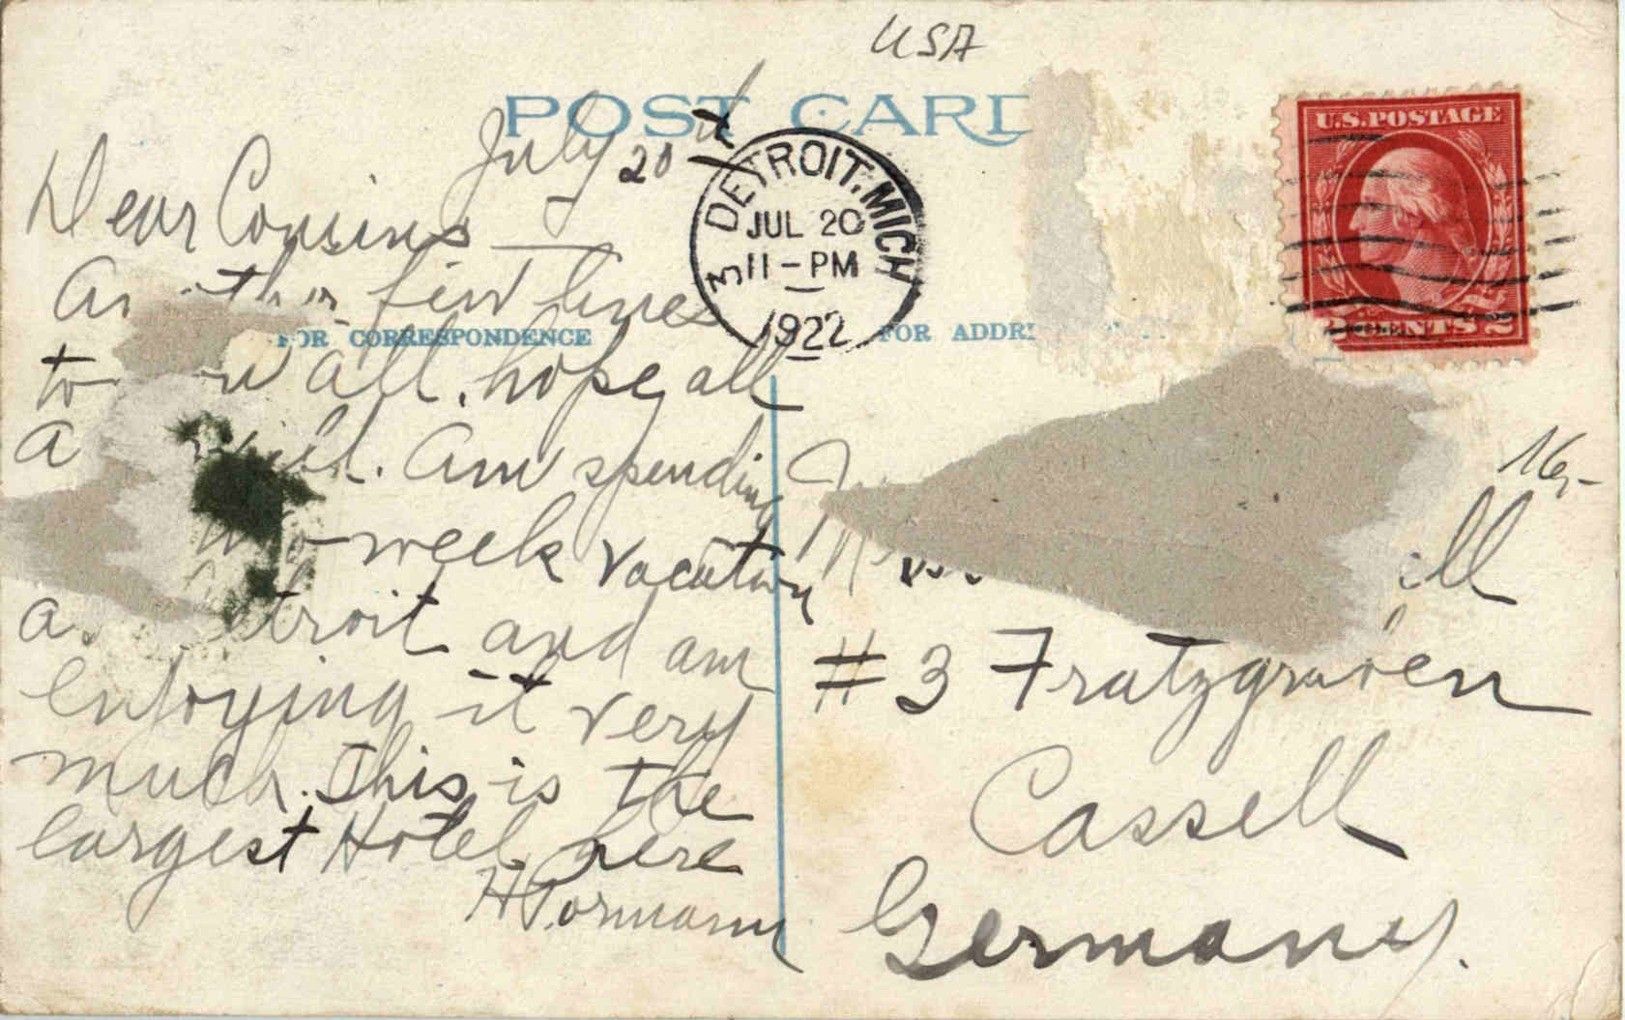 USA
POST CARD
July 20th
DETROIT, MICH
3
JUL 20
11-PM
1922
U.S. POSTAGE
2 CENTS 2
Dear Cousins
few lines
FOR CORRESPONDENCE
FOR ADDR
to all, hope all
Am spending
week vacation
troit and am
enjoying it very
much. This is the
largest Hotel here
16,-
#3 Fratzgraven
Cassell
Germany.